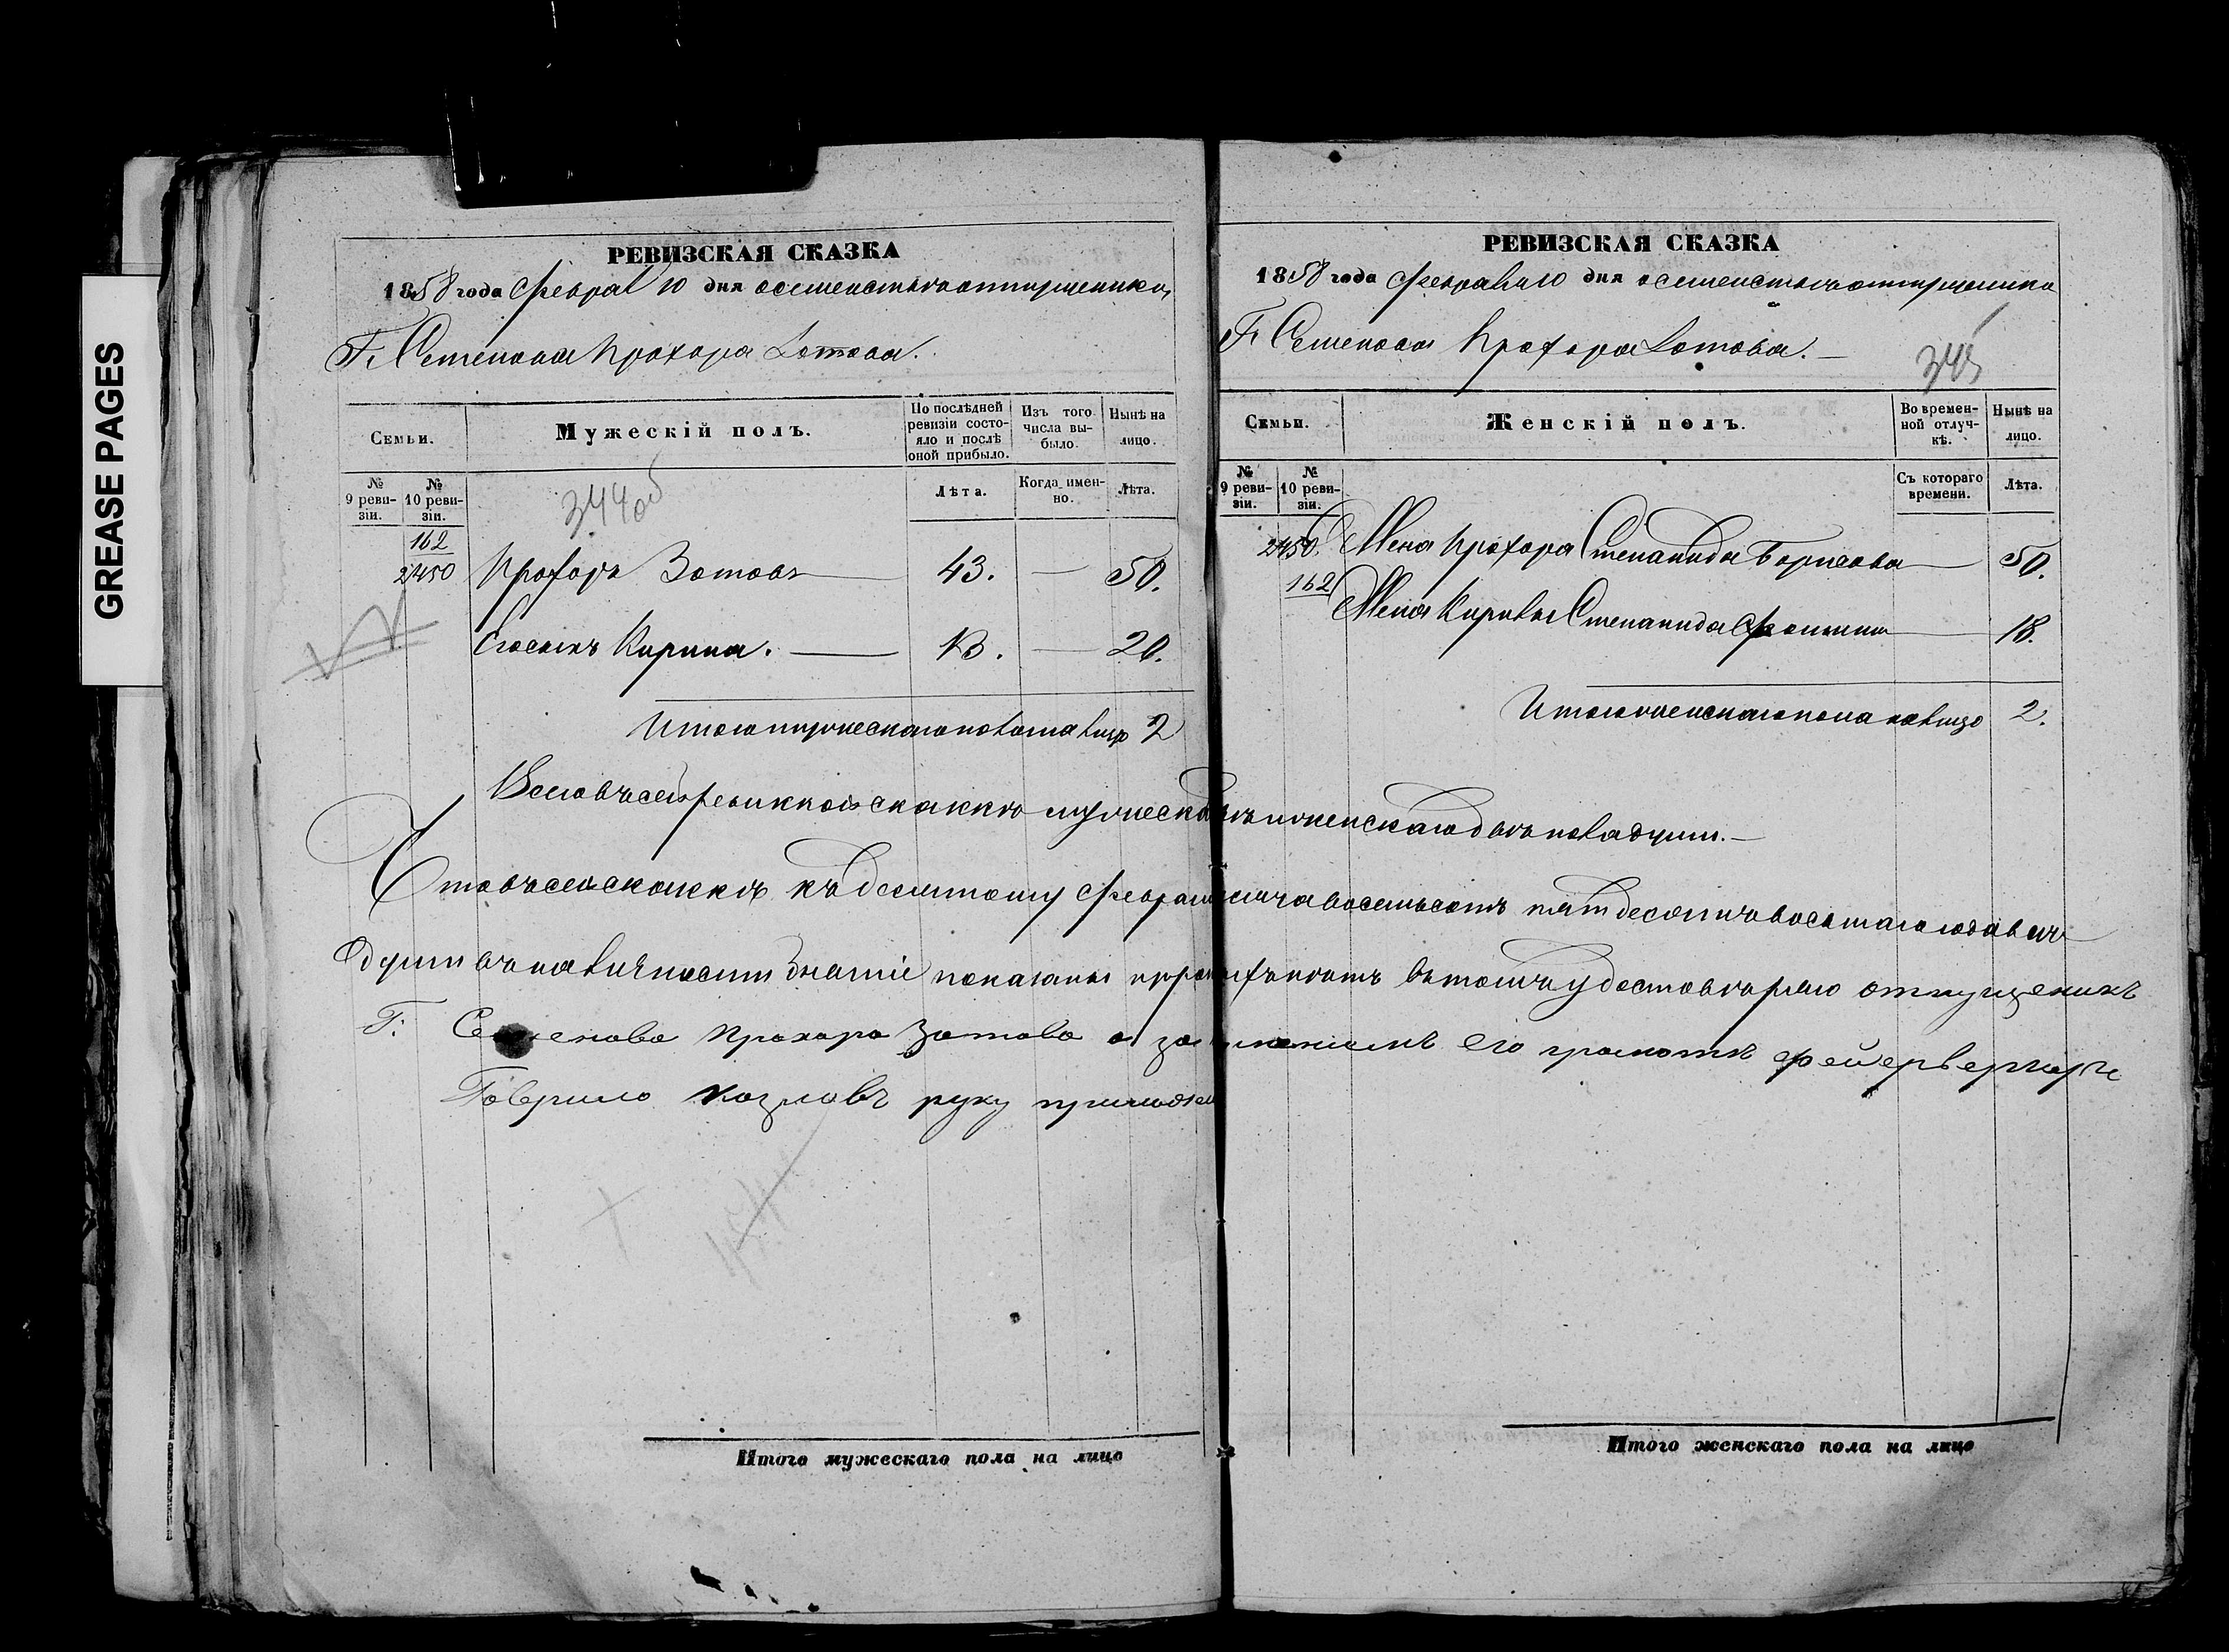 GREASE PAGES
РЕВИЗСКАЯ СКАЗКА
1858 года Феврал 10 дня о семействѣ отпущеника
Г. Семенова Прохора Зотова.
Семьи.
Мужескій полъ.
По послѣдней ревизіи состояло и послѣ оной прибыло.
Изъ того числа выбыло.
Нынѣ на лицо.
№ 9 ревизіи.
№ 10 ревизіи.
Лѣта.
Когда именно.
Лѣта.
344об
162
2450 Прохоръ Зотовъ 43. — 50.
Егосынъ Кирила. 13. — 20.
Итого мужескаго пола на лицо 2
РЕВИЗСКАЯ СКАЗКА
1858 года Февраля 10 дня о семействѣ отпущеника
Г. Семенова Прохора Зотова.
345
Семьи.
Женскій полъ.
Во временной отлучкѣ.
Нынѣ на лицо.
№ 9 ревизіи.
№ 10 ревизіи.
Съ котораго времени.
Лѣта.
2450. Жена Прохора Степанида Борисова 50.
162
Жена Кирилы Степанида 18.
Итого женскаго пола на лицо 2.
Всего въ сей ревизкой сказкѣ мужеска двѣ и женскаго двѣ пола души.
Что въ сей сказкѣ къ десятому Февраля тысяча восемьсотъ пятдесятъ восьмаго года всѣ
души въ наличности бывшіе показаны и прописныхъ нѣтъ въ томъ удостовѣряю отпущеникъ
Г: Семенова Прохора Зотова а за его грамотѣ фейерверкеръ
Гаврило Козловъ руку приложилъ
Итого мужескаго пола на лицо
Итого женскаго пола на лицо